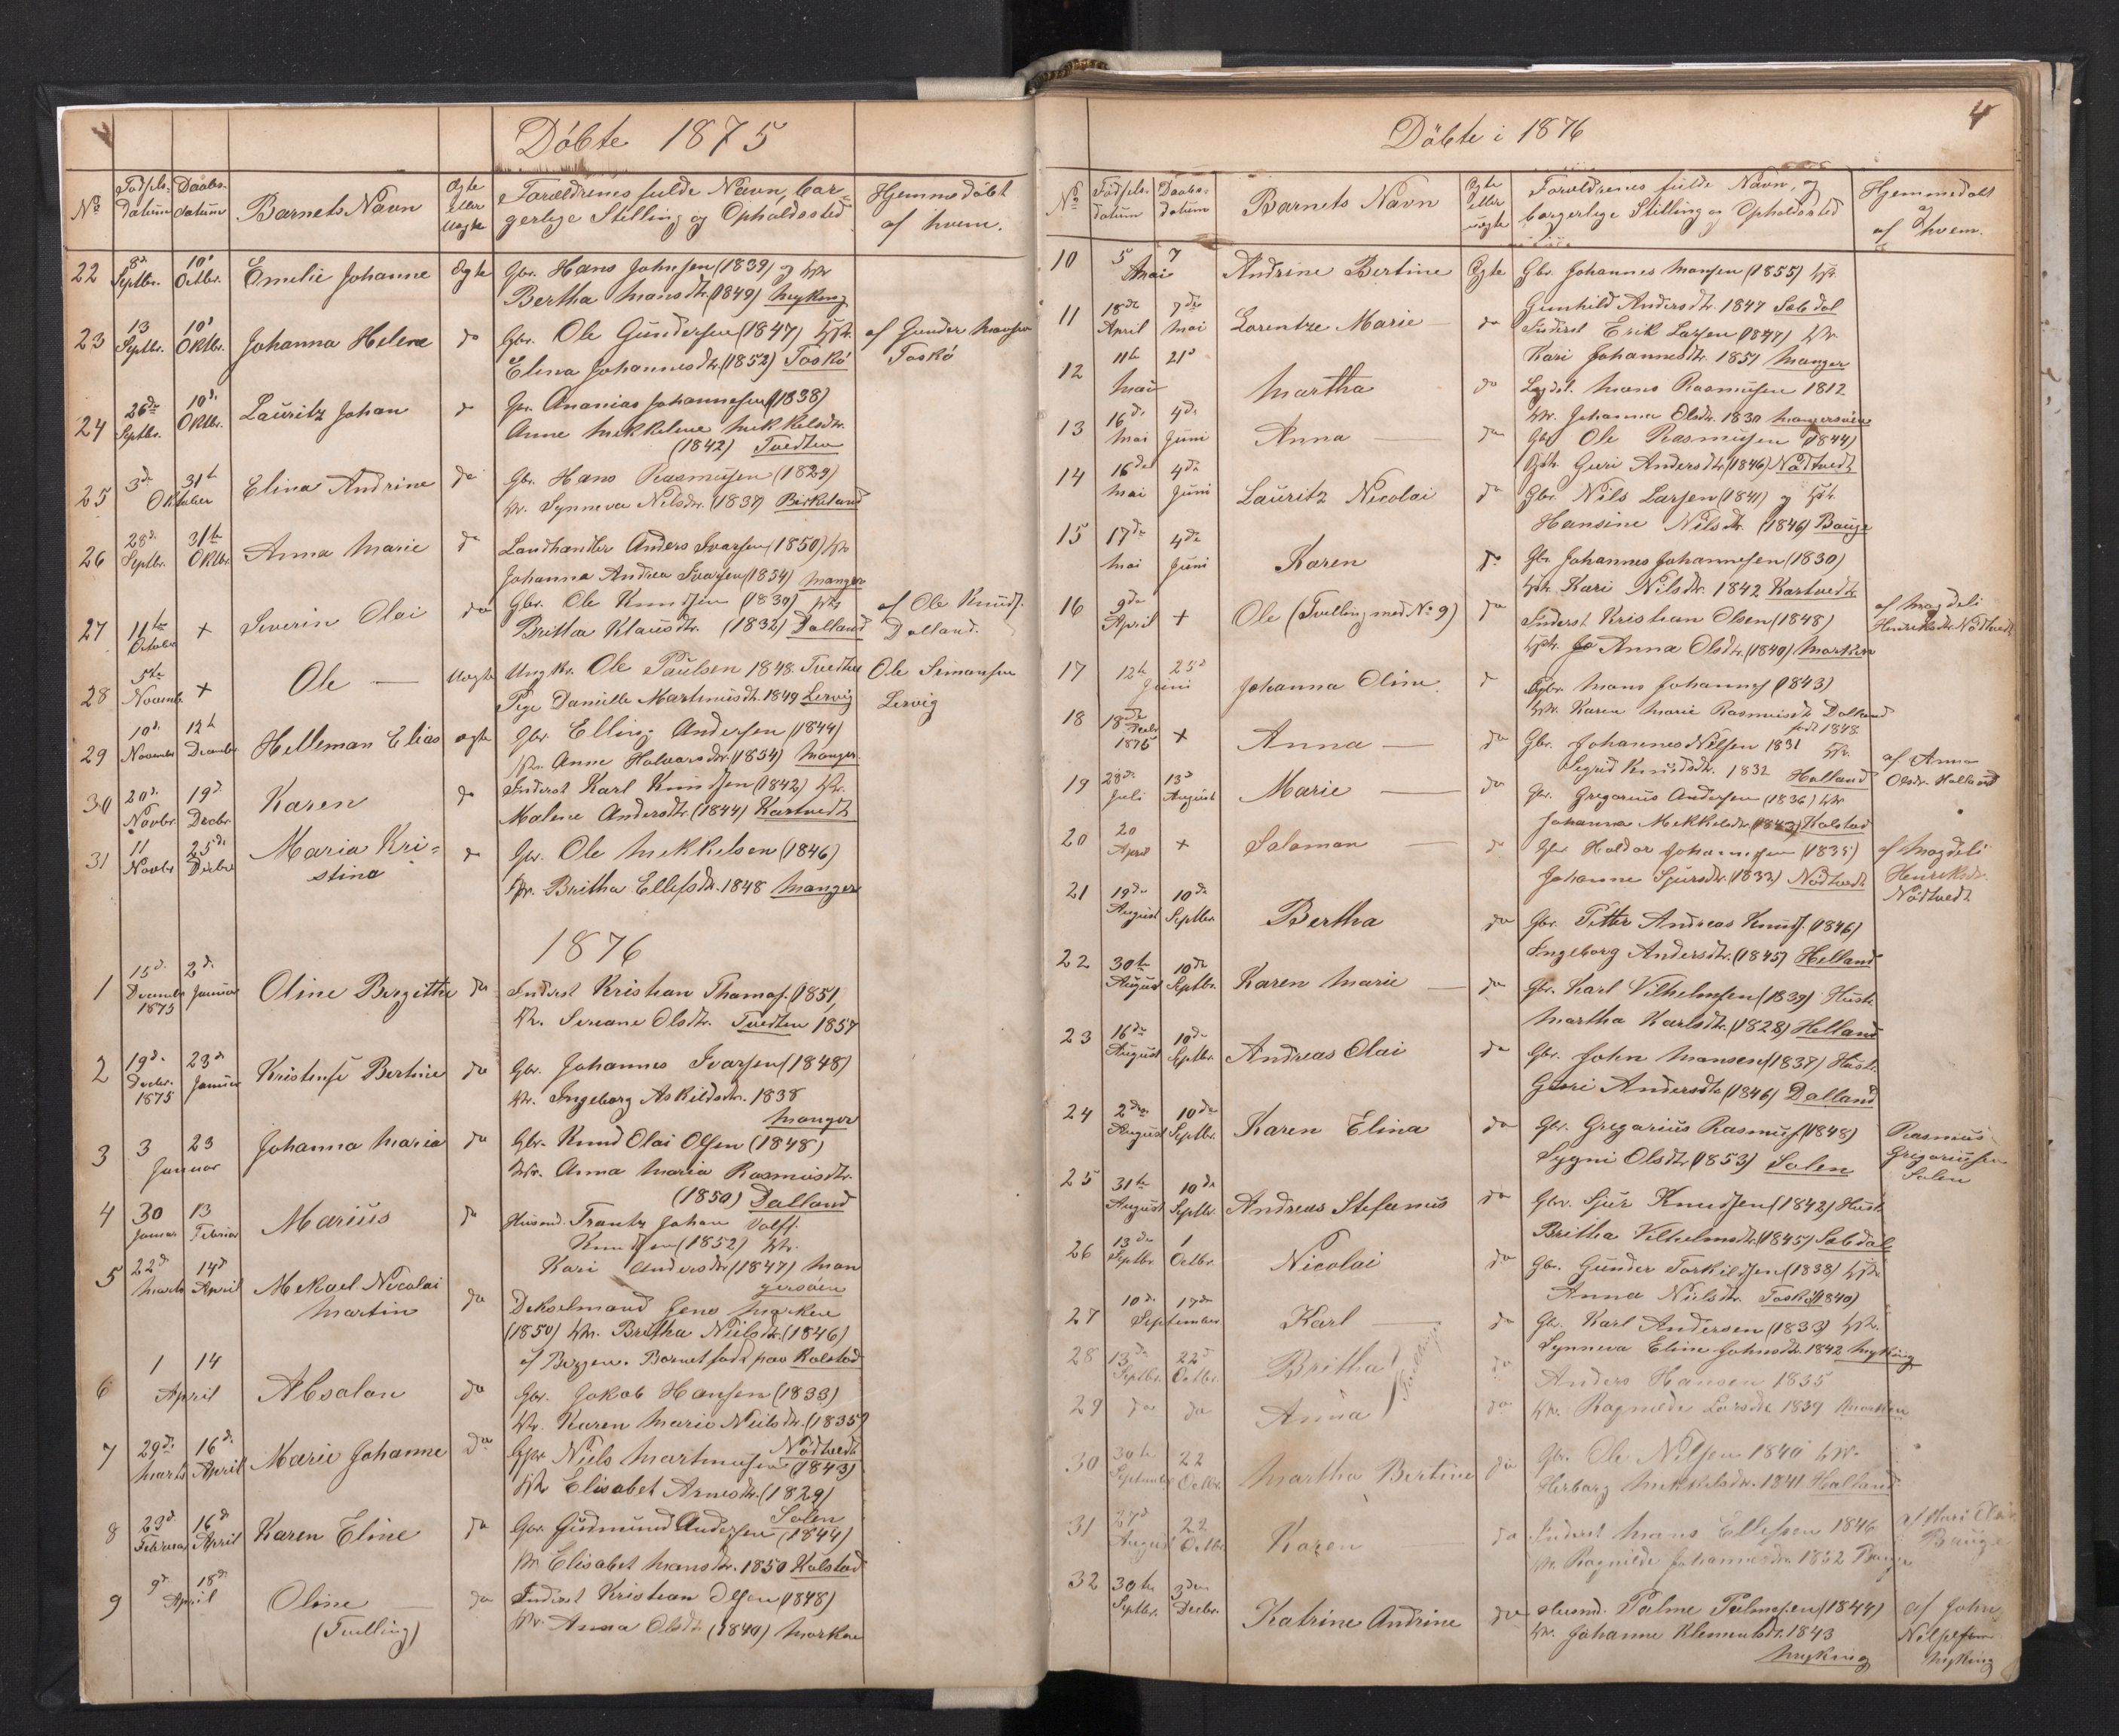 Döbte 1875
No
Födsels-
datum
Daabs-
datum
Barnets Navn
Ægte
eller
uægte
Forældrenes fulde Navn, bor-
gerlige Stilling og Opholdssted
Hjemmedöbt
af hvem.
22 8d Septbr. 10d Octbr. Emelie Johanne Ægte Gbr. Hans Johnsen (1839) og Hst
Bertha Mansdtr. (1849) Myking
23 13 Septbr. 10d Oktbr. Johanna Helene do Gbr. Ole Gundersen (1847) Hst. af Gunder Mansen
Elena Johannesdtr. (1852) Toskö Toskö
24 26de Septbr. 10d. Oktbr. Lauritz Johan do Gbr. Ananias Johannesen (1838)
Anne Mekkelene Mekkelsdtr.
(1842) Tvedten
25 3de 31te Oktober Elina Andrine do Gbr. Hans Rasmusen (1829)
Hst. Synneva Nilsdtr. (1837) Birkeland
26 28d. Septbr. 31te Oktbr. Anna Marie do Landhandler Anders Ivarsen (1850) Hst
Johanna Andrea Ivarsen (1854) Manger
27 11te October + Severin Olai do Gbr. Ole Knudsen (1830) Hst af Ole Knuds.
Britha Klausdtr. (1832) Dalland Dalland.
28 5te Novemb. + Ole — Uægte Ungkr. Ole Paulsen 1848 Tvedten Ole Simonsen
Pige Danielle Martinusdtr. 1849 Lervig Lervig
29 10d. November 12te December Helleman Elias ægte Gbr. Elling Andersen (1844)
Hst. Anne Halvarsdtr. (1854) Manger
30 20d. Novbr. 19d. Decbr. Karen do Inderst Karl Knudsen (1842) Hst.
Malene Andersdtr. (1844) Kartvedt
31 11 Novbr 25de Decbr Maria Kri-
stina do Gbr. Ole Mekkelsen (1846)
Hst. Britha Ellefsdtr. 1848 Manger
1876
1 15d. Decembr 1875 2d. Januar Oline Bergitthe do Inderst Kristian Thomas. (1851,
Hst. Seriane Olsdtr. Tvedten 1857
2 19d. Decbr. 1875 23d Januar Kristense Bertine do Gbr. Johannes Ivarsen (1848)
Hst. Ingeborg Askildsdtr. 1838
Manger
3 3 23 Januar Johanna Maria do Gbr. Knud Olai Olsen (1848)
Hst. Anna Maria Rasmusdtr.
(1850) Dalland
4 30 Januar 13 Februar Marius do Husmd. Frantz Johan Volff.
Knudsen (1852) Hst.
Kari Andersdtr. (1847) Man
gersöen
5 22d Marts 14d April Mekael Nicolai
Martin do Dekselmand Jens Marken
(1850) Hst. Britha Nielsdtr. (1846)
af Bergen. Barnet födt paa Kolstad
6 1 14 April Absalon do Gbr. Jakob Hansen (1833)
Hst. Karen Marie Nielsdtr. (1835)
Nödtvedt
7 29d. Marts 16d. April Marie Johanne do Gbr Niels Martinusen (1843)
Hst Elisabet Arnesdtr. (1829)
Solen
8 23d. Februar 16d April Karen Eline do Gbr. Gudmund Andersen (1844)
Hst Elisabet Mansdtr. 1850 Kolstad
9 9d. 18d. April Oline —
(Tvilling) do Inderst Kristian Olsen (1848)
Hst. Anna Olsdtr. (1840) Marken
4
Döbte i 1876
No
Födsels-
datum
Daabs-
datum
Barnets Navn
Ægte
eller
uægte
Forældrenes fulde Navn, og
borgerlige Stilling og Opholdssted
Hjemmedöbt
og
af hvem.
10 5 7 Mai Andrine Bertine Ægte Gbr. Johannes Monsen (1855) Hst.
Gunhild Andersdtr. 1847 Sæbdal
11 18de April 7de Mai Lorentze Marie — do Inderst Erik Larsen (1847) Hst.
Kari Johannesdtr. 1851 Manger
12 11te 21d Mai Martha do Lægdsl. Mons Rasmusen 1812
Hst. Johanna Olsdtr. 1830 Mangersöen
13 16d. Mai 4de Juni Anna — do Gbr Ole Rasmusen (1844)
Hst. Guri Andersdtr. (1846) Nödtvedt
14 16de Mai 4de Juni Lauritz Nicolai do Gbr. Nils Larsen (1841) og Hst.
Hansine Nilsdtr. (1846) Bauge
15 17de Mai 4de Juni Karen do Gbr Johannes Johannesen (1830)
Hst. Kari Nilsdtr. 1842 Kartvedt
16 9de April + Ole (Tvilling med No 9) do Inderst Kristian Olsen (1848) af Magdeli
Hst. Anna Olsdtr. (1840) Marken Henriksdtr Nödtvedt
17 12te 25d Juni Johanna Oline. do Gbr. Mons Johannes (1843)
Hst. Karen Marie Rasmusdtr Dalland
född 1848
18 18de Decbr 1875 + Anna — do Gbr. Johannes Nilsen 1831 Hst. af Anna
Sigrid Knudsdtr. 1832 Holland Olsdtr. Holland
19 28de Juli 13d August Marie — do Gbr. Gregorius Andersen (1836) Hst
Johanna Mekkelsdtr. (1843) Kolstad
20 20 April + Salomon — do Gbr Haldor Johannesen (1835) af Magdeli
Johanne Sjursdtr. (1833) Nödtvedt Henriksdtr.
Nödtvedt
21 19de August 10de Septbr. Bertha do Gbr. Petter Andreas Knuds. (1846)
Ingeborg Andersdtr. (1845) Helland
22 30te August 10de Septbr. Karen Marie — do Gbr. Karl Vilhelmsen (1839) Hustr.
Martha Karlsdtr. (1828) Helland
23 16de August 10de Septbr. Andreas Olai do Gbr. John Mansen (1837) Hustr.
Guri Andersdtr. (1846) Dalland
24 2den August 10de Septbr. Karen Elina do Gbr. Gregarius Rasmus. (1848) Rasmus
Sygni Olsdtr. (1853) Solen Grigoriusen
Solen
25 31te August 10de Septbr. Andreas Stefanus do Gbr. Sjur Knudsen (1842) Hustr.
Britha Vilhelmsdtr. (1845) Sæbdal
26 13de Septbr 1 Octbr. Nicolai do Gbr. Gunder Torkildsen (1838) Hst.
Anna Nielsdtr. Toskö (1840)
27 10d. 17de September Karl — do Gbr. Karl Andersen (1833) Hst.
Synneva Eline Johnsdtr. 1842 Myking
28 13de Septbr. 22d Octbr. Britha do Anders Hansen 1835
Tvillinge
29 do do Anna do Hst. Ragnilde Larsdtr 1839 Marken
30 30te September 22 Octbr. Martha Bertine do Gbr. Ole Nilsen 1840 Hst.
Herborg Mekkelsdtr. 1841 Holland
31 27d August 22 Octbr Karen do Inderst Mans Ellefsen 1846 af Kari Olsdtr.
Hst. Ragnilde Johannesdtr 1852 Bauge Bauge
32 30te Septbr. 3den Decbr. Katrine Andrine do Husmd. Palme Palmesen (1844) af John
Hst. Johanne Klementsdtr. 1843 Nilssen
Myking Myking